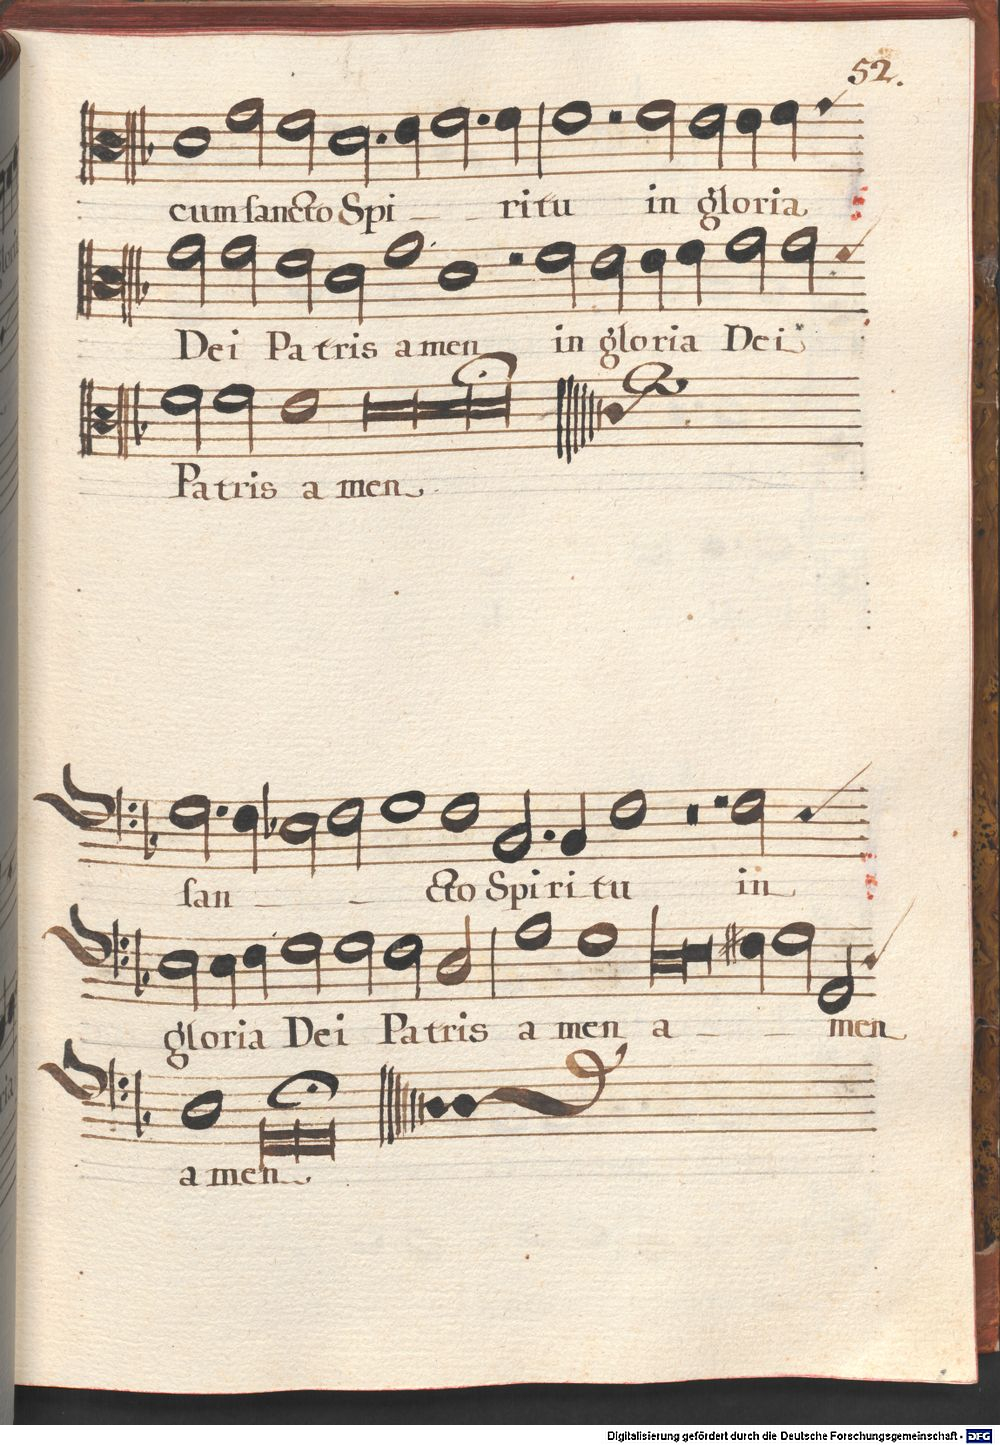 52.
cum sancto Spi - - ritu in gloria
Dei Patris amen in gloria Dei
Patris amen
san - - cto Spiritu in
gloria Dei Patris amen a - - men
amen
Digitalisierung gefördert durch die Deutsche Forschungsgemeinschaft - DFG